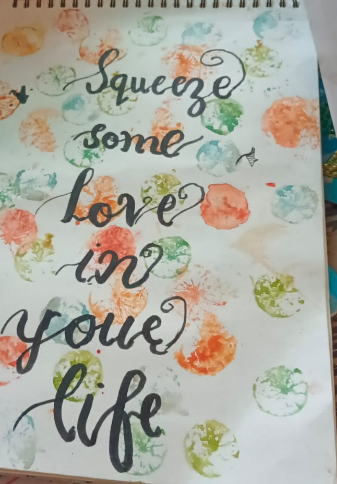 Squeeze
some
Love
in
your
life